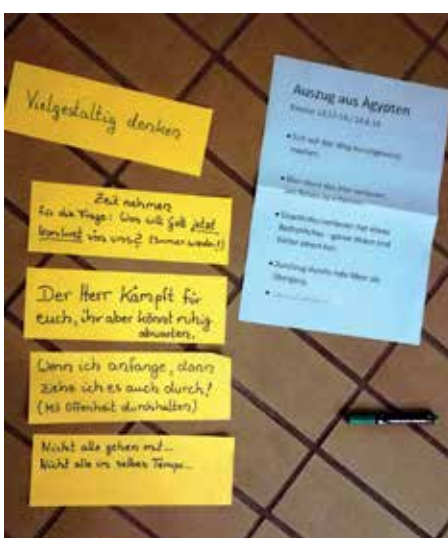 Vielgestaltig denken
Zeit nehmen
für die Frage: Was will Gott jetzt
konkret von uns? (Immer wieder!)
Der Herr kämpft für
euch, ihr aber könnt ruhig
abwarten.
Wenn ich anfange, dann
ziehe ich es auch durch!
(Mit Offenheit durchhalten)
Nicht alle gehen mit...
Nicht alle im selben Tempo...
Auszug aus Ägypten
Sich auf den Weg
machen
Durchzug durchs rote Meer als
Übergang